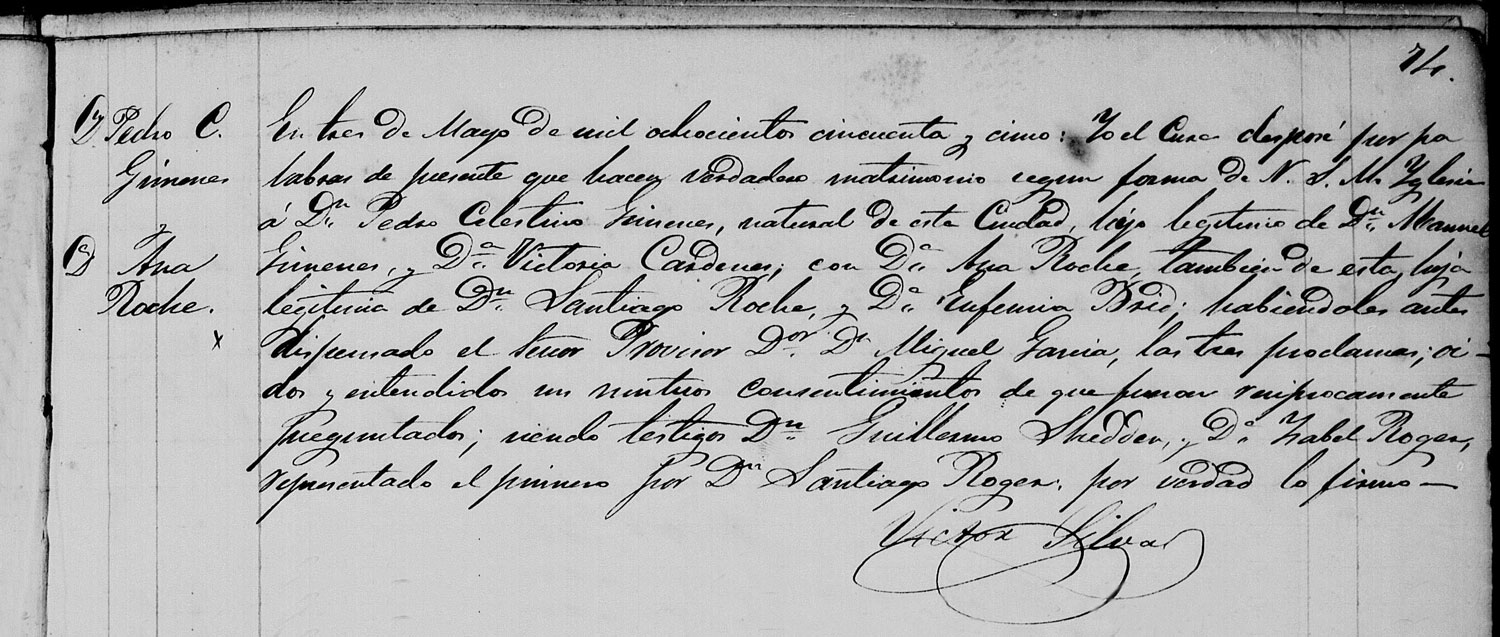 74.
Dn Pedro C.
Gimenes
Da Ana
Roche.
x
En tres de Mayo de mil ochocientos cincuenta y cinco: Yo el Cura desposé por pa
labras de presente que hacen verdadero matrimonio segun forma de N. S. M. Yglesia
á Dn. Pedro Celestino Gimenes, natural de esta Ciudad, hijo legitimo de Dn. Manuel
Gimenes, y Da. Victoria Cardenes; con Da. Ana Roche, tambien de esta, hija
legitima de Dn. Santiago Roche, y Da. Eufemia Brid; habiendoles antes
dispensado el Señor Provisor Dor. Dn. Miguel Garcia, las tres proclamas; oi-
dos y entendidos sus mutuos consentimientos de que fueron reciprocamente
preguntados; siendo testigos Dn. Guillermo Shedden, y Da. Yzabel Roger,
representado el primero por Dn. Santiago Roger. por verdad lo firmo—
Victor Silva